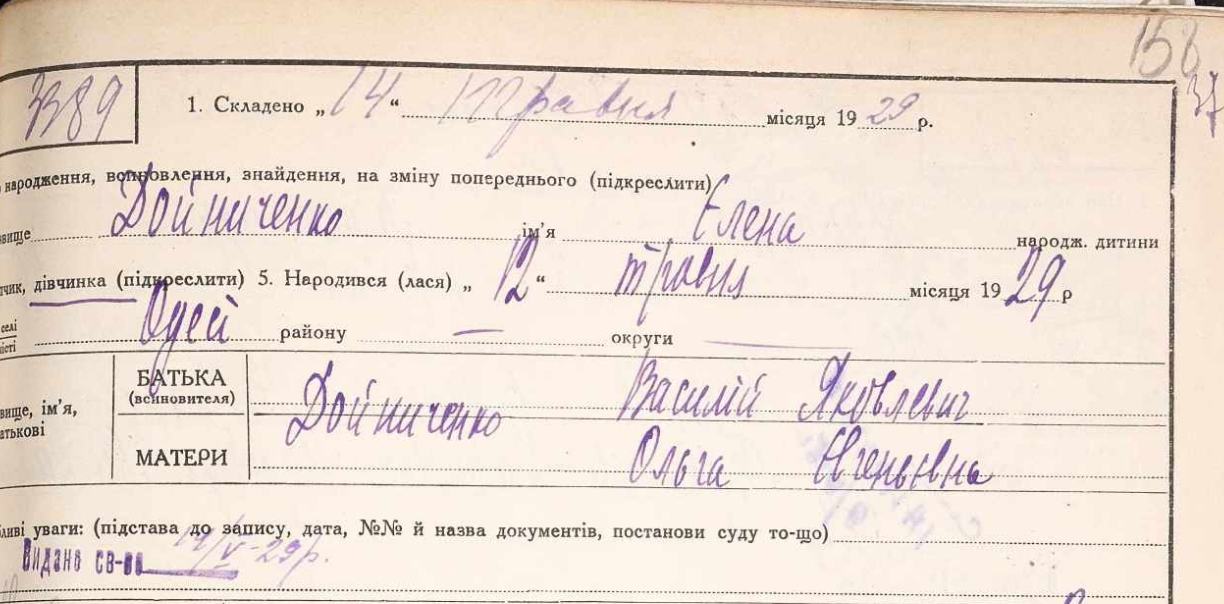 158
37
3389 1. Складено „14“ травня місяця 1929 р.
народження, всиновлення, знайдення, на зміну попереднього (підкреслити)
звище Дойниченко ім'я Елена народж. дитини
тчик, дівчинка (підкреслити) 5. Народився (лася) „12“ травня місяця 1929 р
селі
місті Одесі району — округи
звище, ім'я, БАТЬКА Дойниченко Василий Яковлевич
атькові (всиновителя)
МАТЕРИ Ольга Евгеньевна
бливі уваги: (підстава до запису, дата, №№ й назва документів, постанови суду то-що)
Видано св-во 14/V-29р.